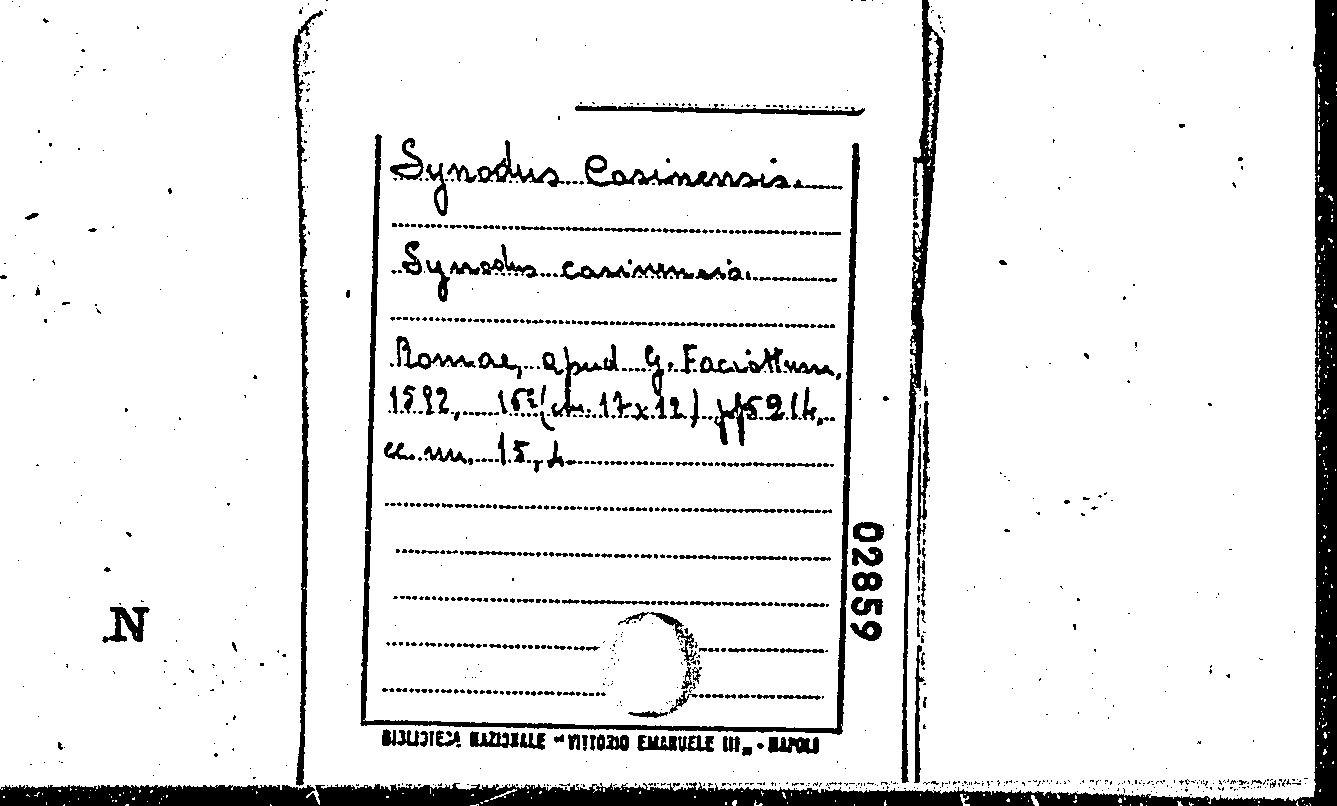 Synodus Casinensis.
Synodus casinensis.
Romae, apud G. Faciottum,
1592, 16º (cm. 17x12) pp
cc. nn. 15,
02859
N
BIBLIOTECA NAZIONALE "VITTORIO EMANUELE III" - NAPOLI